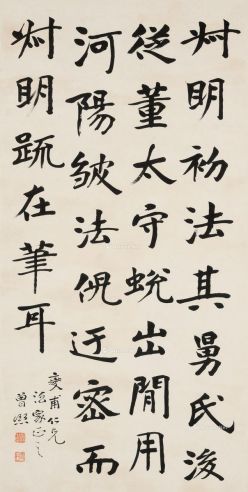 叔明初法其舅氏後
從董太守蛻出閒用
河陽皴法倪迂密而
叔明疏在筆耳
燮甫仁兄
法家正之
曾熙